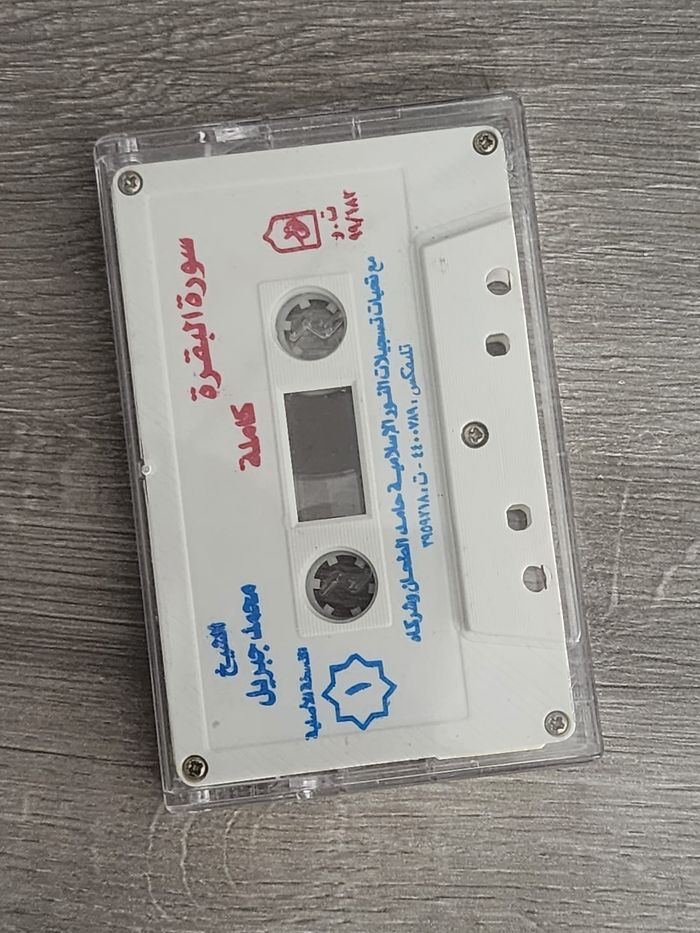 سورة البقرة
كاملة
الشيخ
محمد جبريل
ت.د
٩٩/١٨٢
النسخة الأصلية
١
مع تحيات تسجيلات النور الإسلامية حامد الطحان وشركاه
تليفاكس: ٤٤٠٠٧٨٩ - ت: ٣٩٥٩٢١٨